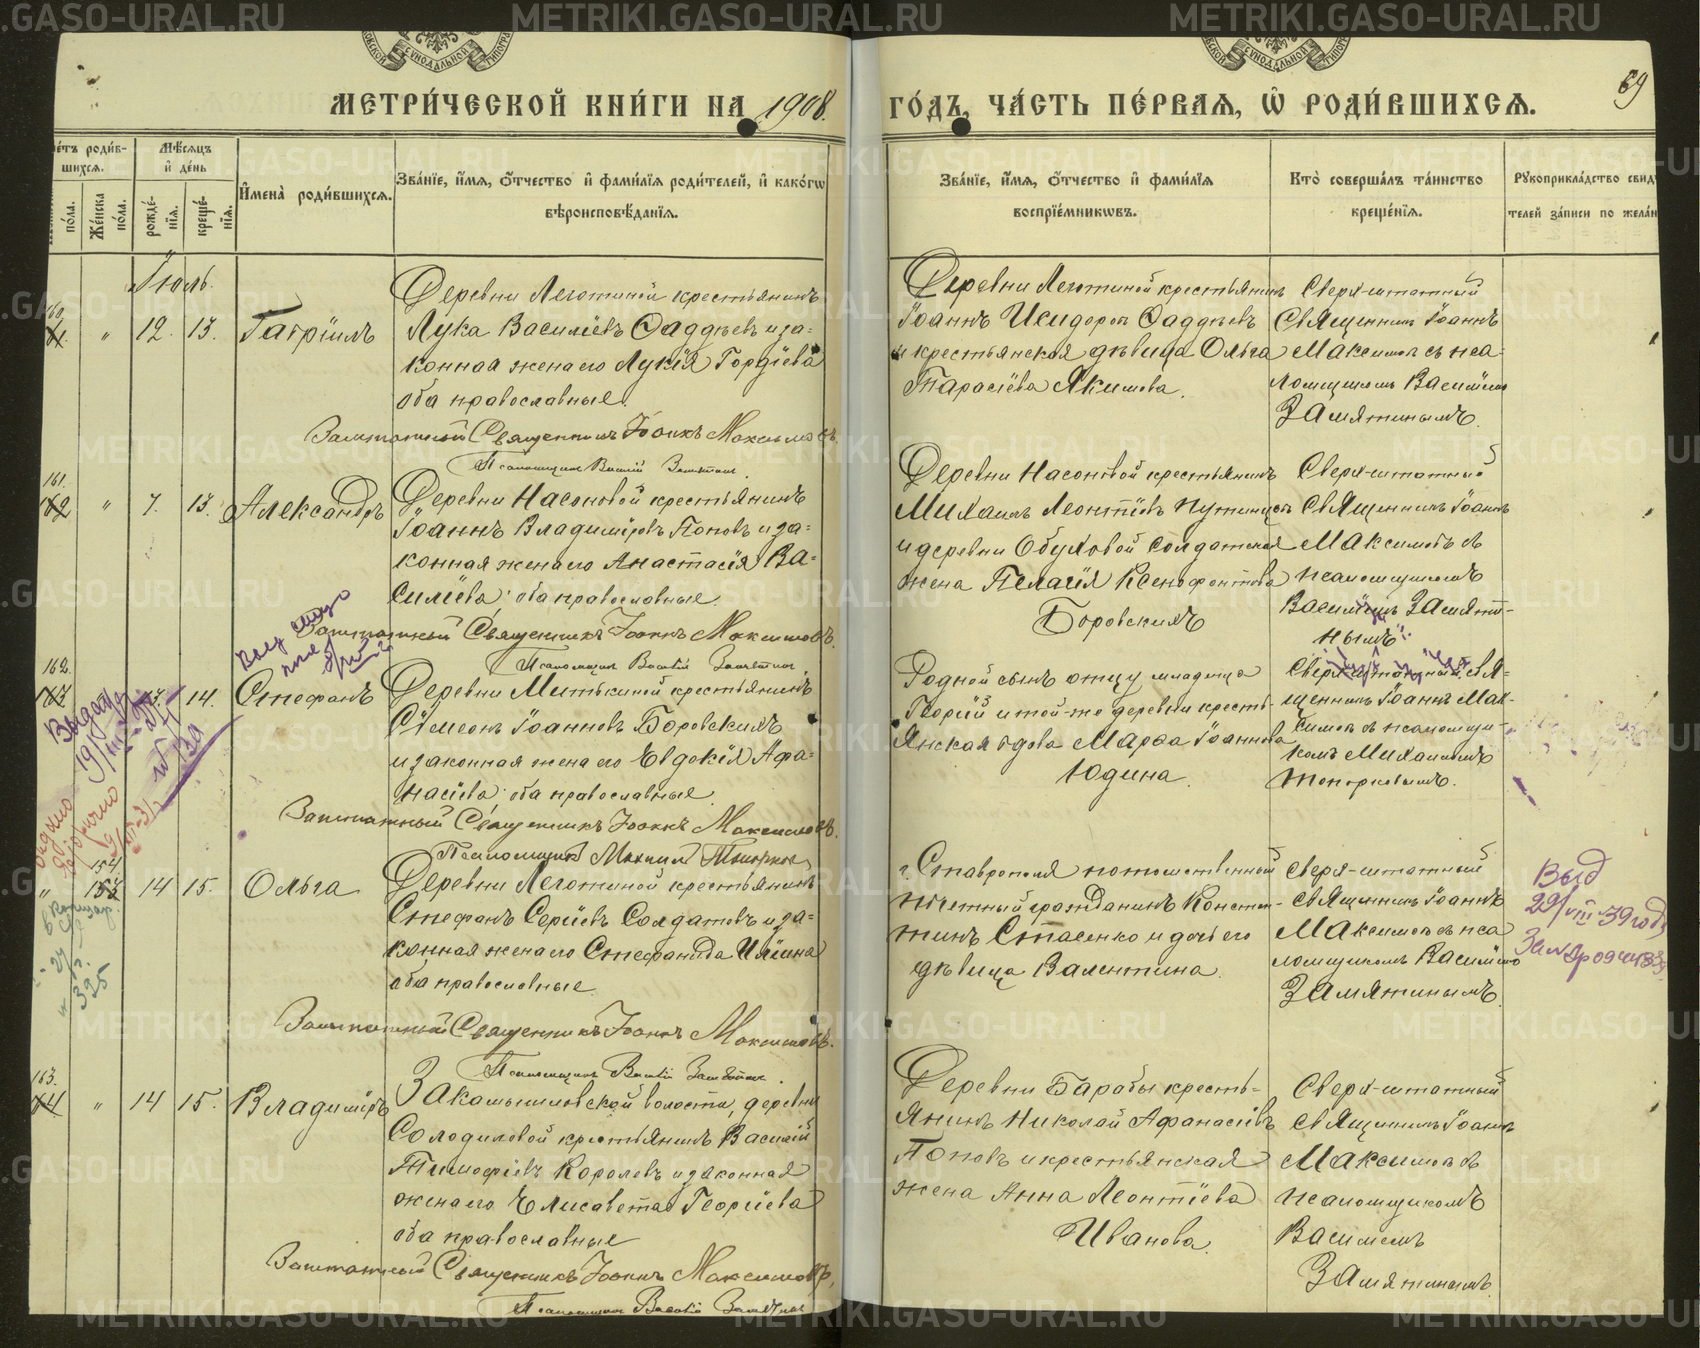 МЕТРИ́ЧЕСКОЙ КНИ́ГИ НА 1908.
ГО́ДЪ, ЧА́СТЬ ПЕ́РВАЯ, Ѡ РОДИ́ВШИХСЯ.
69
Мѣсяцъ и день
рожде́нїя.
креще́нїя.
Же́нска по́ла.
Имена̀ роди́вшихся.
Зва́нїе, и́мя, ѻ́тчество и҆ фами́лїя роди́телей, и҆ како́гѡ
вѣроисповѣ́данїя.
Зва́нїе, и́мя, ѻ́тчество и҆ фами́лїя
воспрїе́мникѡвъ.
Кто̀ соверша́лъ та́инство
креще́нїя.
Рукоприкла́дство свид
телей за́писи по жела́н
Іюль.
" 12. 13. Гавріилъ
Деревни Леготиной крестьянинъ
Лука Василіевъ Ѳаддѣевъ и за-
конная жена его Лукія Гордіева
оба православные.
Заштатный Священникъ Іоаннъ Максимовъ.
Псаломщикъ Василій Замятин
Деревни Леготиной крестьянинъ
Іоаннъ Исидоровъ Ѳаддѣевъ
и крестьянская дѣвица Ольга
Тарасіева Якимова.
Сверх-штатный
Священникъ Іоаннъ
Максимовъ съ пса-
ломщикомъ Василіемъ
Замятинымъ.
161.
" 7. 13. Александръ
Деревни Насоновой крестьянинъ
Іоаннъ Владиміровъ Поповъ и за-
конная жена его Анастасія Ва-
силіева: оба православные.
Заштатный Священникъ Іоаннъ Максимовъ.
Псаломщикъ Василій Замятин
Деревни Насоновой крестьянинъ
Михаилъ Леонтіевъ Путинцевъ
и деревни Обуховой солдатская
жена Пелагія Ксенофонтова
Боровскихъ
Сверх-штатный
Священникъ Іоаннъ
Максимовъ съ
псаломщикомъ
Василіемъ Замяти-
нымъ.
162
14. Стефанъ
Деревни Митькиной крестьянинъ
Сѷмеонъ Іоанновъ Боровскихъ
и законная жена его Евдокія Афа-
насіева: оба православные.
Заштатный Священникъ Іоаннъ Максимовъ.
Псаломщикъ Михаилъ Топорков
Родной сынъ отцу младенца
Георгій и той-же деревни кресть-
янская вдова Марѳа Іоаннова
Юдина.
Сверх-штатный свя-
щенникъ Іоаннъ Мак-
симовъ съ псаломщи-
комъ Михаиломъ
Топорковымъ.
154.
" 14 15. Ольга
Деревни Леготиной крестьянинъ
Стефанъ Сергіевъ Солдатовъ и за-
конная жена его Стефанида Иліина
оба православные.
Заштатный Священникъ Іоаннъ Максимовъ.
Псаломщикъ Василій Замятин.
г. Ставрополя потомственный
почетный гражданинъ Констан-
тинъ Стасенко и дочь его
дѣвица Валентина.
Сверх-штатный
Священникъ Іоаннъ
Максимовъ съ пса
ломщикомъ Василіемъ
Замятинымъ.
Выд
29/VIII-39 год
163.
" 14 15. Владиміръ
Закамышловской волости, деревни
Солодиловой крестьянинъ Василій
Тимофіевъ Королевъ и законная
жена его Елисавета Георгіева
оба православные
Заштатный Священникъ Іоаннъ Максимовъ,
Псаломщикъ Василій Замятин
Деревни Барабы кресть-
янинъ Николай Афанасіевъ
Поповъ и крестьянская
жена Анна Леонтіева
Иванова.
Сверх-штатный
Священникъ Іоаннъ
Максимовъ съ
псаломщикомъ
Василіемъ
Замятинымъ.
METRIKI.GASO-URAL.RU